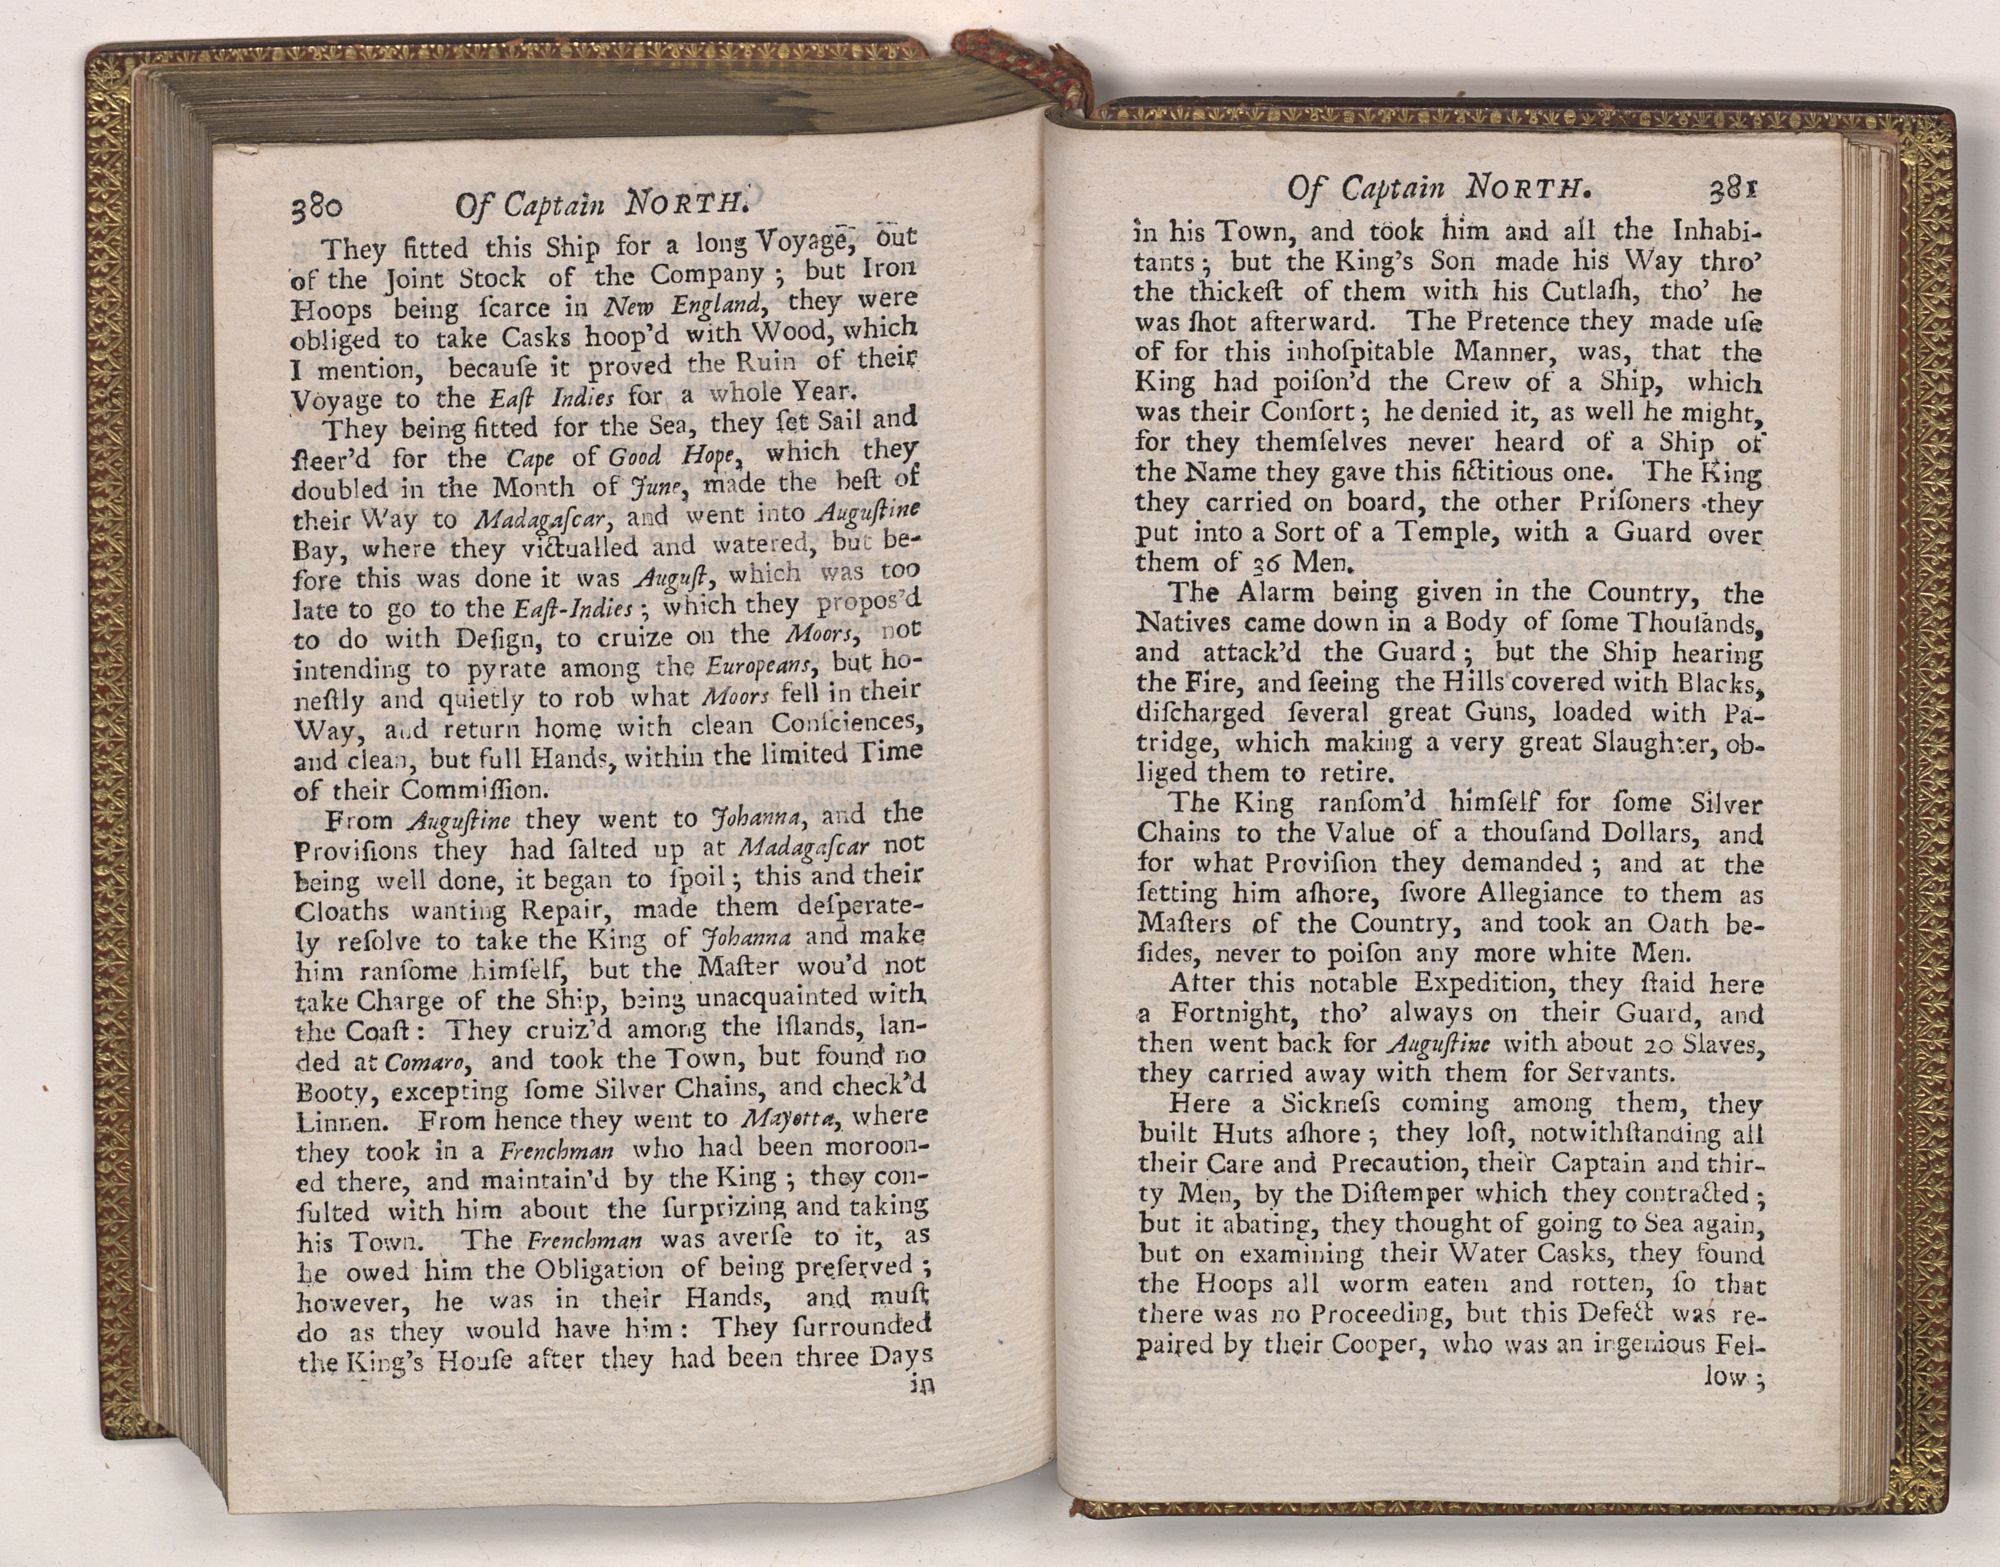 380 Of Captain NORTH.
They fitted this Ship for a long Voyage, out
of the Joint Stock of the Company; but Iron
Hoops being ſcarce in New England, they were
obliged to take Casks hoop'd with Wood, which
I mention, becauſe it proved the Ruin of their
Voyage to the Eaſt Indies for a whole Year.
They being fitted for the Sea, they ſet Sail and
ſteer'd for the Cape of Good Hope, which they
doubled in the Month of June, made the beſt of
their Way to Madagaſcar, and went into Auguſtine
Bay, where they victualled and watered, but be-
fore this was done it was Auguſt, which was too
late to go to the Eaſt-Indies; which they propos'd
to do with Deſign, to cruize on the Moors, not
intending to pyrate among the Europeans, but ho-
neſtly and quietly to rob what Moors fell in their
Way, and return home with clean Conſciences,
and clean, but full Hands, within the limited Time
of their Commiſſion.
From Auguſtine they went to Johanna, and the
Proviſions they had ſalted up at Madagaſcar not
being well done, it began to ſpoil; this and their
Cloaths wanting Repair, made them deſperate-
ly reſolve to take the King of Johanna and make
him ranſome himſelf, but the Maſter wou'd not
take Charge of the Ship, being unacquainted with
the Coaſt: They cruiz'd among the Iſlands, lan-
ded at Comaro, and took the Town, but found no
Booty, excepting ſome Silver Chains, and check'd
Linnen. From hence they went to Mayotta, where
they took in a Frenchman who had been moroon-
ed there, and maintain'd by the King; they con-
ſulted with him about the ſurprizing and taking
his Town. The Frenchman was averſe to it, as
he owed him the Obligation of being preſerved;
however, he was in their Hands, and muſt
do as they would have him: They ſurrounded
the King's Houſe after they had been three Days
in
Of Captain NORTH. 381
in his Town, and took him and all the Inhabi-
tants; but the King's Son made his Way thro'
the thickeſt of them with his Cutlaſh, tho' he
was ſhot afterward. The Pretence they made uſe
of for this inhoſpitable Manner, was, that the
King had poiſon'd the Crew of a Ship, which
was their Conſort; he denied it, as well he might,
for they themſelves never heard of a Ship of
the Name they gave this fictitious one. The King
they carried on board, the other Priſoners they
put into a Sort of a Temple, with a Guard over
them of 36 Men.
The Alarm being given in the Country, the
Natives came down in a Body of ſome Thouſands,
and attack'd the Guard; but the Ship hearing
the Fire, and ſeeing the Hills covered with Blacks,
diſcharged ſeveral great Guns, loaded with Pa-
tridge, which making a very great Slaughter, ob-
liged them to retire.
The King ranſom'd himſelf for ſome Silver
Chains to the Value of a thouſand Dollars, and
for what Proviſion they demanded; and at the
ſetting him aſhore, ſwore Allegiance to them as
Maſters of the Country, and took an Oath be-
ſides, never to poiſon any more white Men.
After this notable Expedition, they ſtaid here
a Fortnight, tho' always on their Guard, and
then went back for Auguſtine with about 20 Slaves,
they carried away with them for Servants.
Here a Sickneſs coming among them, they
built Huts aſhore; they loſt, notwithſtanding all
their Care and Precaution, their Captain and thir-
ty Men, by the Diſtemper which they contracted;
but it abating, they thought of going to Sea again,
but on examining their Water Casks, they found
the Hoops all worm eaten and rotten, ſo that
there was no Proceeding, but this Defect was re-
paired by their Cooper, who was an ingenious Fel-
low;